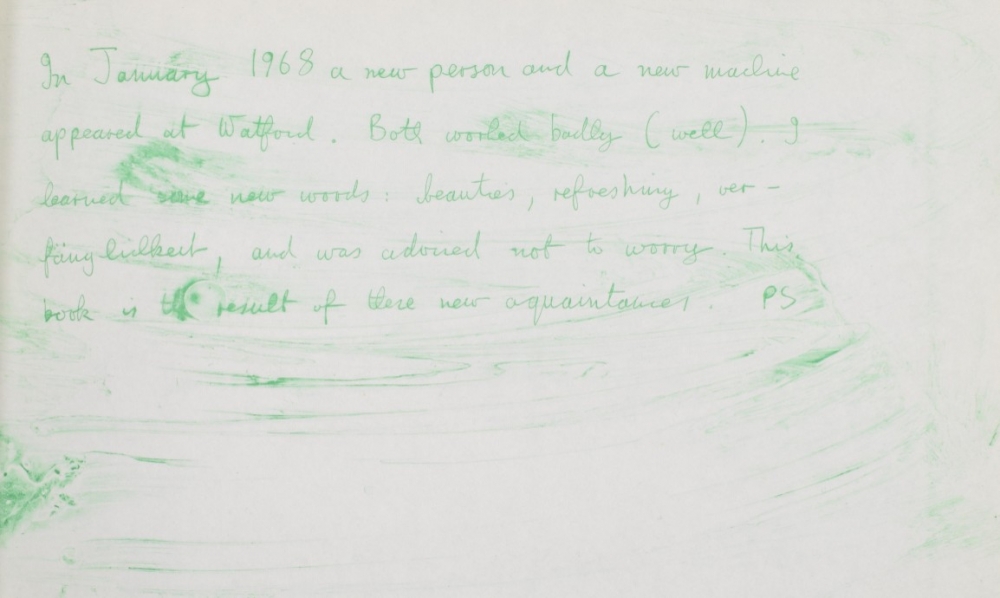 In January 1968 a new person and a new machine
appeared at Watford. Both worked badly (well). I
learned some new words: beauties, refreshing, ver-
fänglichkeit, and was adviced not to worry. This
book is the result of these new aquaintances. PS